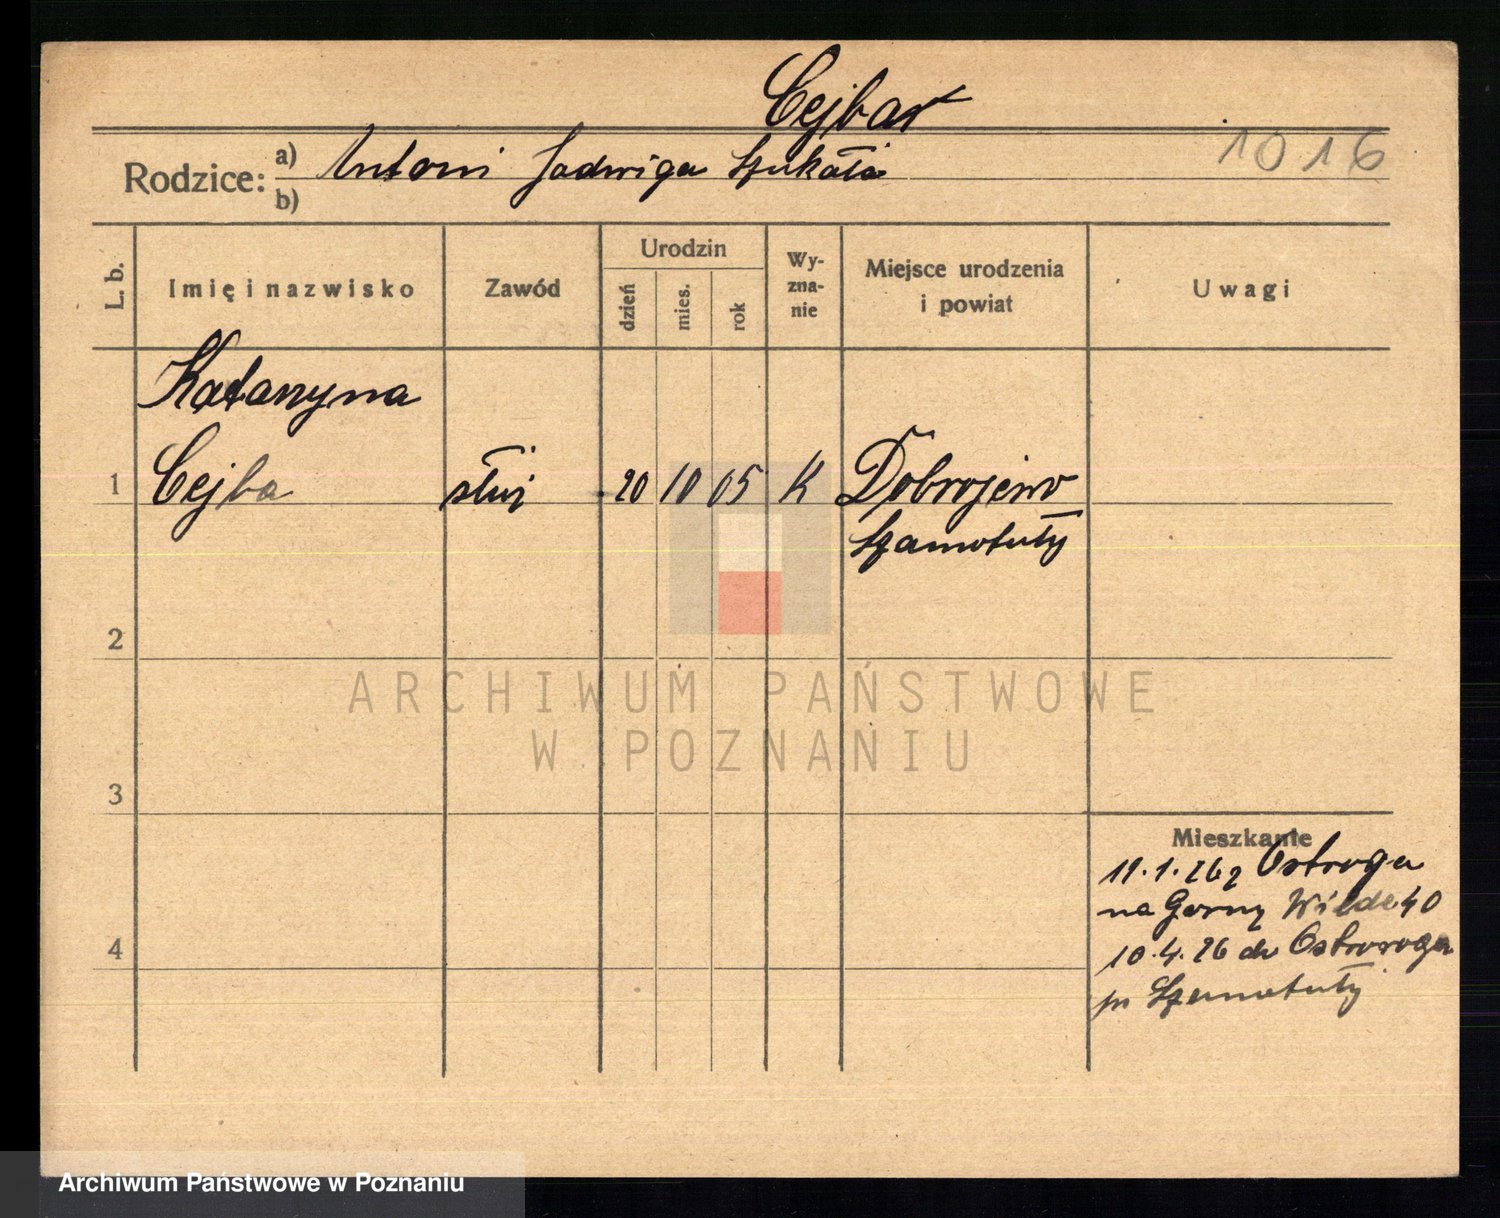 Cejba
1016
Rodzice: a) Antoni Jadwiga Szukała
b)
L. b.
Imię i nazwisko
Zawód
Urodzin
dzień
mies.
rok
Wy-
zna-
nie
Miejsce urodzenia
i powiat
Uwagi
Katarzyna
1 Cejba służ 20 10 05 K Dobrojewo
Szamotuły
2
ARCHIWUM PAŃSTWOWE
W POZNANIU
3
Mieszkanie
11.1.26 z Ostroga
na Gorny Wilde 40
4
10.4.26 do Ostroroga
p Szamotuły
Archiwum Państwowe w Poznaniu